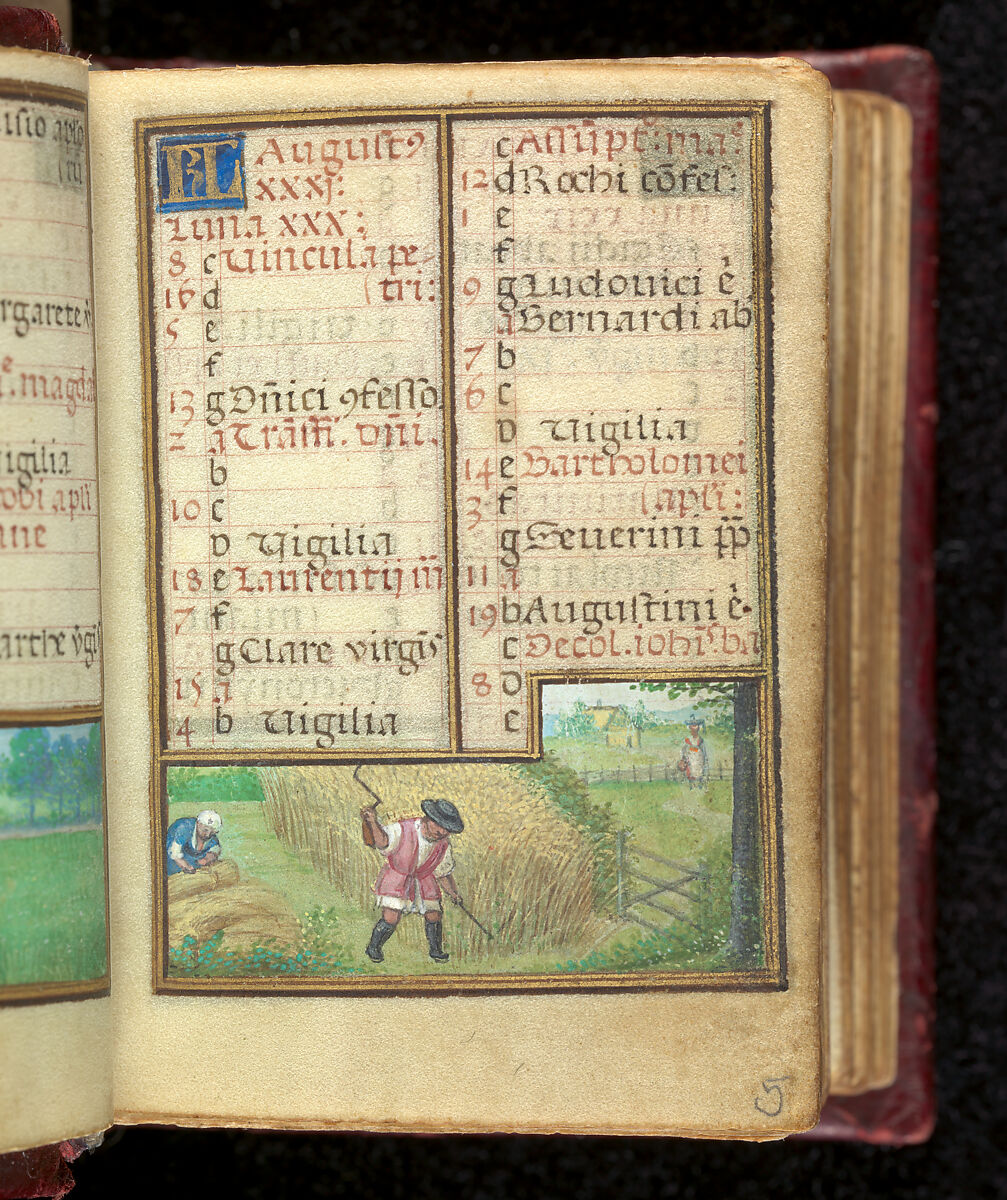 isio apło
rgarete v̄
.e magda
igilia
obi apłi
nne
arthe v̄gīs
KL Augustꝰ
xxxj:
Luna xxx:
8 c Vincula pe
16 d (tri:
5 e
f
13 g Dn̄ici ꝯfesso
2 a Trāsfi. dn̄i.
b
10 c
D Vigilia
18 e Laurentij m̄
7 f
g Clare virgīs
15 a
4 b Vigilia
c Assūptᵒ: maᵉ:
12 d Rochi cōfes:
1 e
f
9 g Ludovici ē
a Bernardi ab
7 b
6 c
D Vigilia
14 e Bartholomei
3 f (apłi:
g Severini p̄p
11 a
19 b Augustini ē.
c Decol. iohīs ba
8 D
e
5